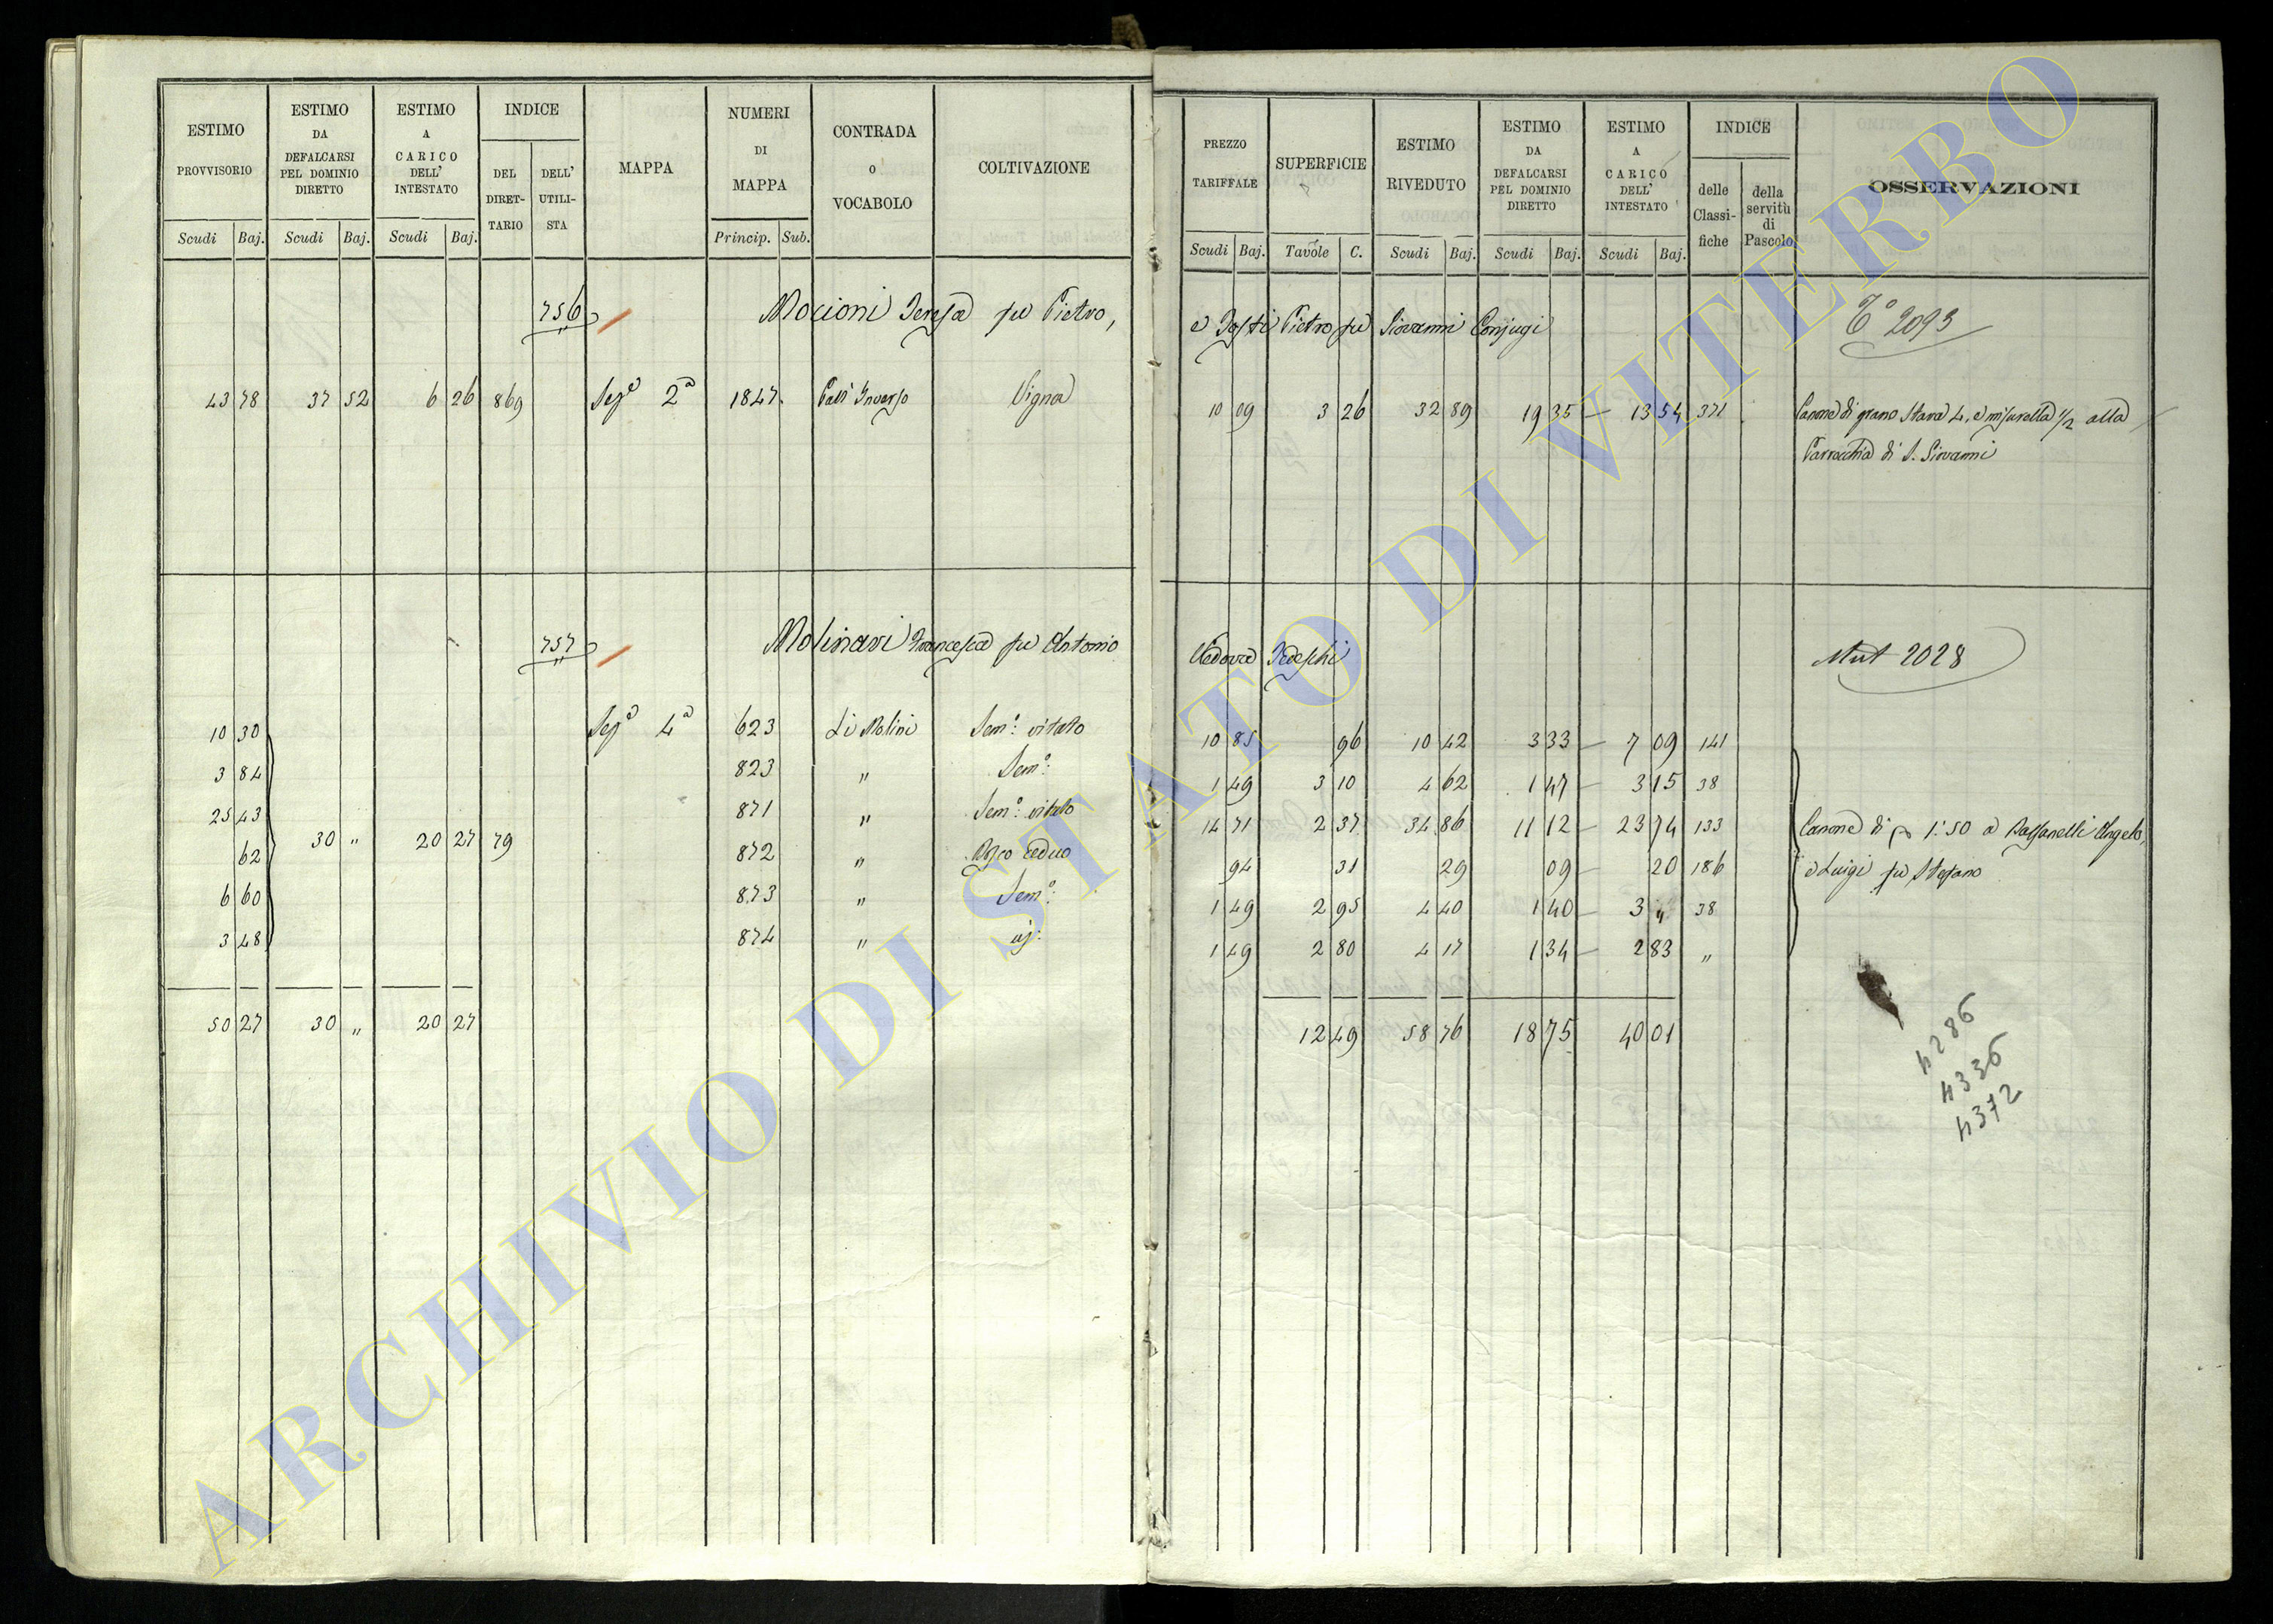 ESTIMO PROVVISORIO
ESTIMO DA DEFALCARSI PEL DOMINIO DIRETTO
ESTIMO A CARICO DELL' INTESTATO
INDICE
DEL DIRET-TARIO
DELL' UTILI-STA
MAPPA
NUMERI DI MAPPA
CONTRADA o VOCABOLO
COLTIVAZIONE
Scudi Baj. Scudi Baj. Scudi Baj. Princip. Sub.
PREZZO TARIFFALE
SUPERFICIE
ESTIMO RIVEDUTO
ESTIMO DA DEFALCARSI PEL DOMINIO DIRETTO
ESTIMO A CARICO DELL' INTESTATO
INDICE
delle Classi-fiche
della servitù di Pascolo
OSSERVAZIONI
Scudi Baj. Tavole C. Scudi Baj. Scudi Baj. Scudi Baj.
756 Mocioni Teresa fu Pietro, e Tosti Pietro fu Giovanni Conjugi 2093
43 78 37 52 6 26 869 Sez.e 2a 1847 Vigna 10 09 3 26 32 89 19 35 – 13 54 371 Canone di grano Stara 4. e misurella 1/2 alla
Parrocchia di S. Giovanni
757 Molinari Francesca fu Antonio Vedova Tedeschi Mut 2028
10 30 Sez.e 4a 623 Li Molini Sem.o vitato 10 85 96 10 42 3 33 – 7 09 141
3 84 823 " Sem.o 1 49 3 10 4 62 1 47 – 3 15 38
25 43 871 " Sem.o vitato 14 71 2 37 34 86 11 12 – 23 74 133 Canone di 1:50 a Bassanelli Angelo,
30 " 20 27 79
62 872 " Bosco ceduo 94 31 29 09 – 20 186 e Luigi fu Stefano
6 60 873 " Sem.o 1 49 2 95 4 40 1 40 – 3 " 38
3 48 874 " 1 49 2 80 4 17 1 34 – 2 83 "
50 27 30 " 20 27 12 49 58 76 18 75 40 01
4286
4336
4372
ARCHIVIO DI STATO DI VITERBO